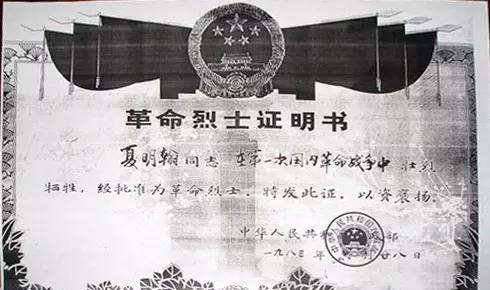 革命烈士证明书
夏明翰同志 在第一次国内革命战争中 壮烈
牺牲，经批准为革命烈士。特发此证，以资褒扬。
中华人民共 部
一九八三年 月廿八日